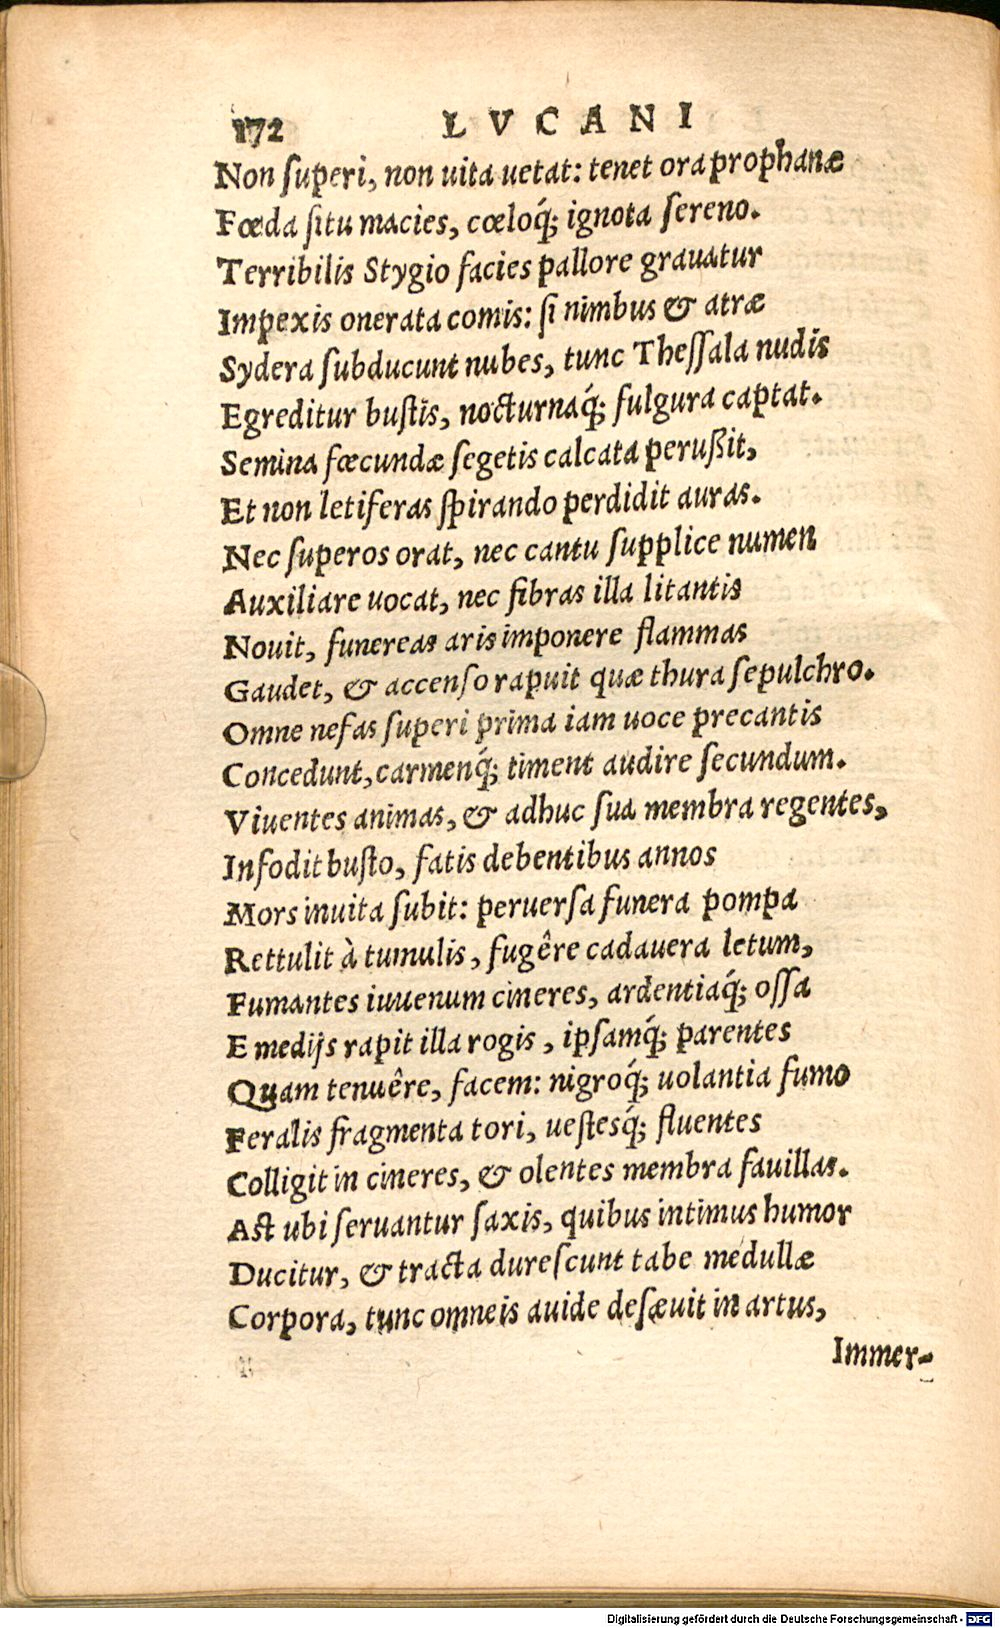 172 LVCANI
Non ſuperi, non uita uetat: tenet ora prophanæ
Fœda ſitu macies, cœloq́; ignota ſereno.
Terribilis Stygio facies pallore grauatur
Impexis onerata comis: ſi nimbus & atræ
Sydera ſubducunt nubes, tunc Theſſala nudis
Egreditur buſtis, nocturnaq́; fulgura captat.
Semina fœcundæ ſegetis calcata perußit,
Et non letiferas ſpirando perdidit auras.
Nec ſuperos orat, nec cantu ſupplice numen
Auxiliare uocat, nec fibras illa litantis
Nouit, funereas aris imponere flammas
Gaudet, & accenſo rapuit quæ thura ſepulchro.
Omne nefas ſuperi prima iam uoce precantis
Concedunt, carmenq́; timent audire ſecundum.
Viuentes animas, & adhuc ſua membra regentes,
Infodit buſto, fatis debentibus annos
Mors inuita ſubit: peruerſa funera pompa
Rettulit à tumulis, fugêre cadauera letum,
Fumantes iuuenum cineres, ardentiaq́; oſſa
E medijs rapit illa rogis, ipſamq́; parentes
Quam tenuêre, facem: nigroq́; uolantia fumo
Feralis fragmenta tori, ueſtesq́; fluentes
Colligit in cineres, & olentes membra fauillas.
Aſt ubi ſeruantur ſaxis, quibus intimus humor
Ducitur, & tracta dureſcunt tabe medullæ
Corpora, tunc omneis auide deſæuit in artus,
Immer-
Digitalisierung gefördert durch die Deutsche Forschungsgemeinschaft - DFG